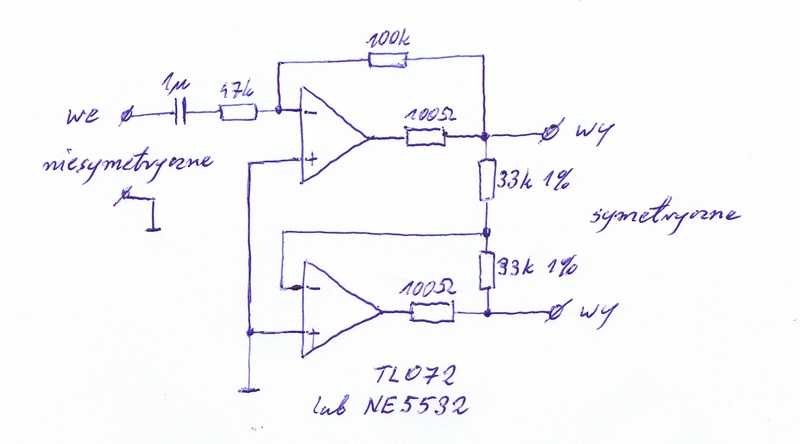 100k
1µ
47k
100Ω
we
wy
niesymetryczne
33k 1%
symetryczne
33k 1%
100Ω
wy
TL072
lub NE5532